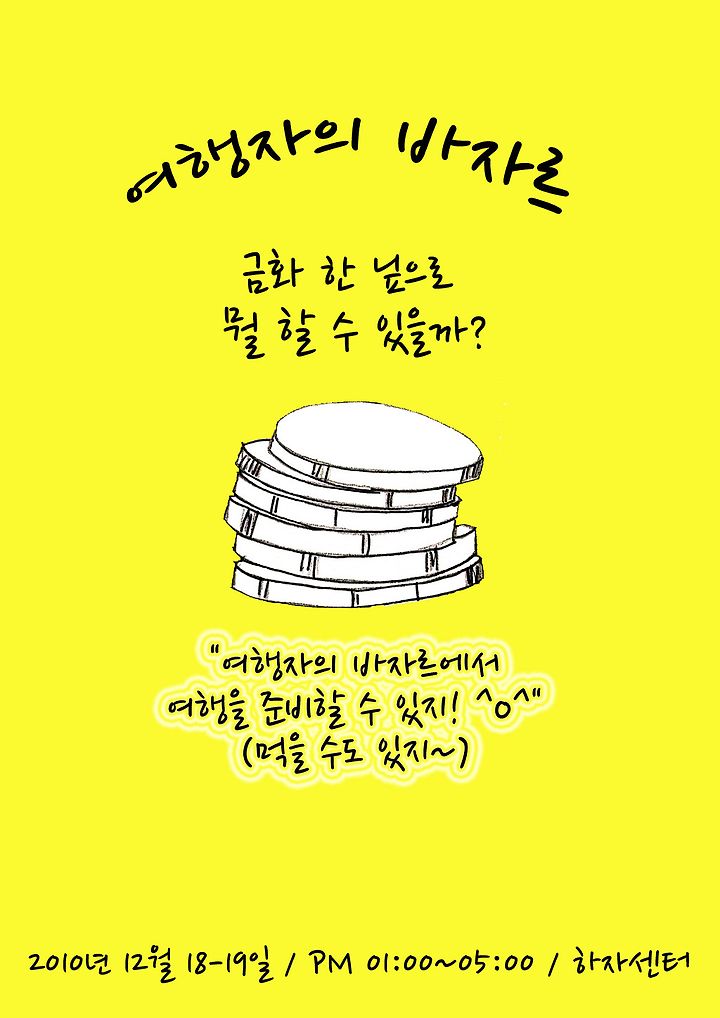 여행자의 바자르
금화 한 닢으로
뭘 할 수 있을까?
"여행자의 바자르에서
여행을 준비할 수 있지! ^o^"
(먹을 수도 있지~)
2010년 12월 18-19일 / PM 01:00~05:00 / 하자센터